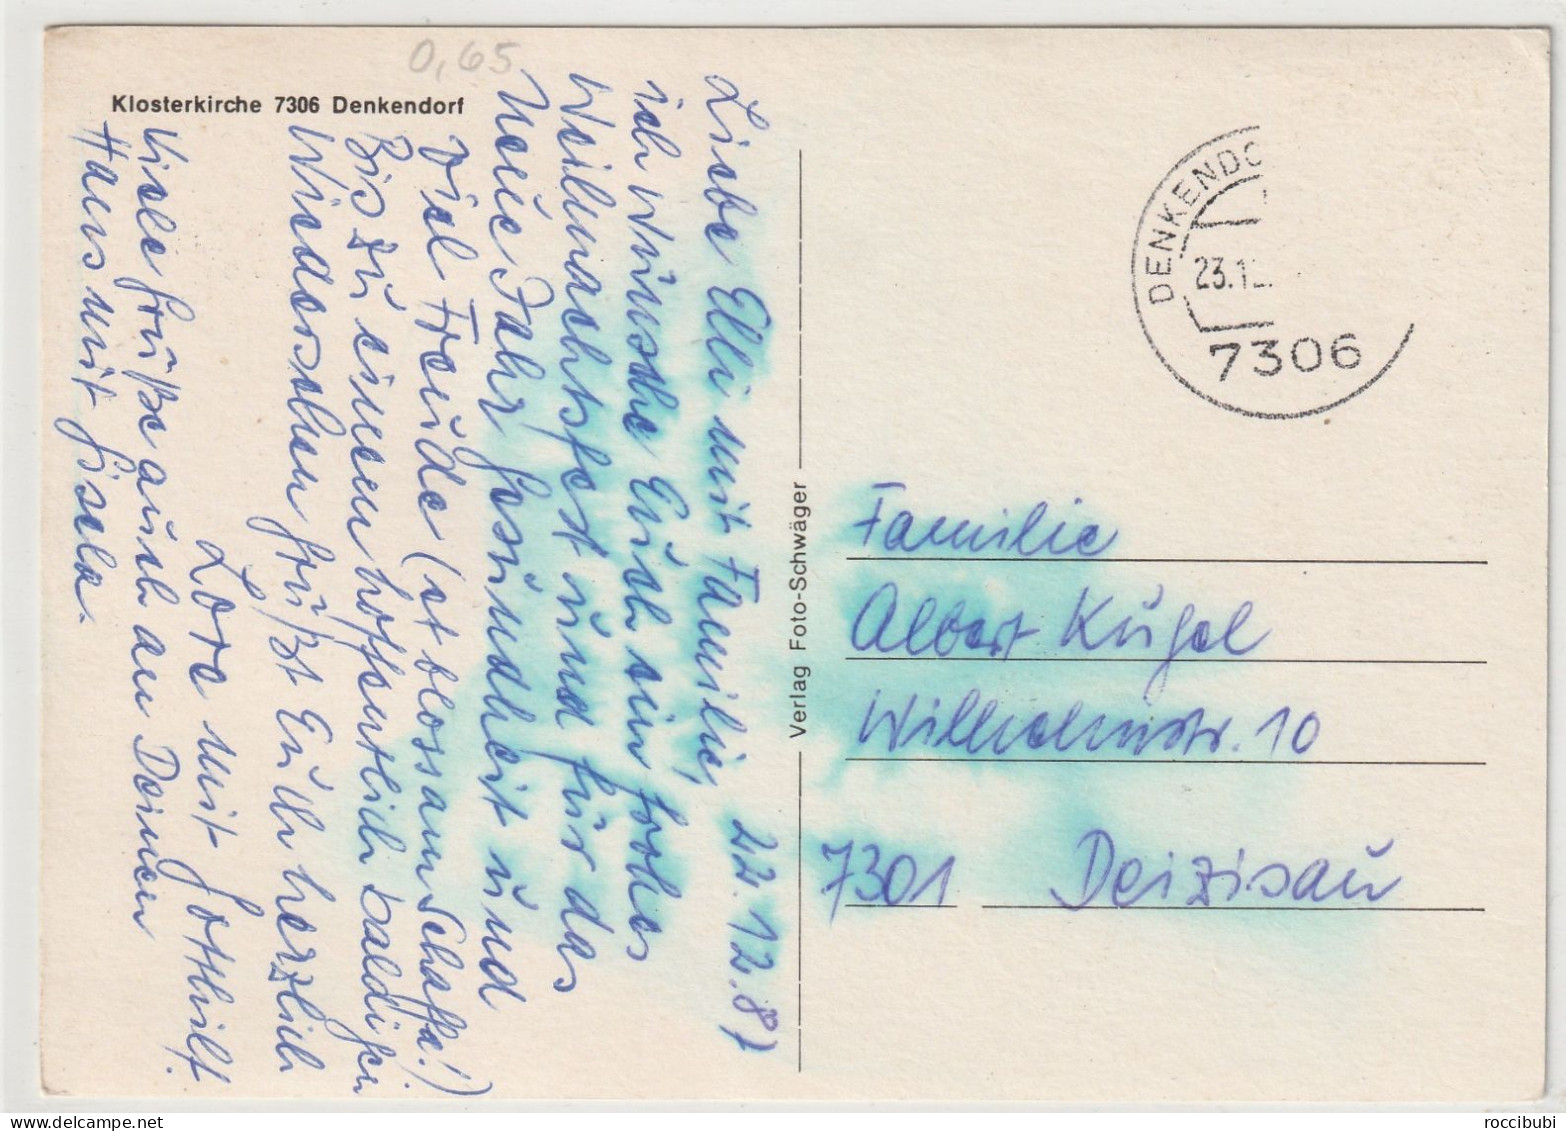 0,65
Klosterkirche 7306 Denkendorf
Liebe Elli mit Familie, 22.12.87
ich wünsche Euch ein frohes
Weihnachtsfest und für das
Neue Jahr Gesundheit und
viel Freude (et bloss am Schaffa!)
Bis zu einem hoffentlich baldigen
Wiedersehen grüßt Euch herzlich
Lore mit Gotthilf.
Viele Grüße auch an Deinen
Hans mit Gisela.
Verlag Foto-Schwäger
DENKENDO
23.12.
7306
Familie
Albert Kugel
Wilhelmstr. 10
7301 Deizisau
roccibubi